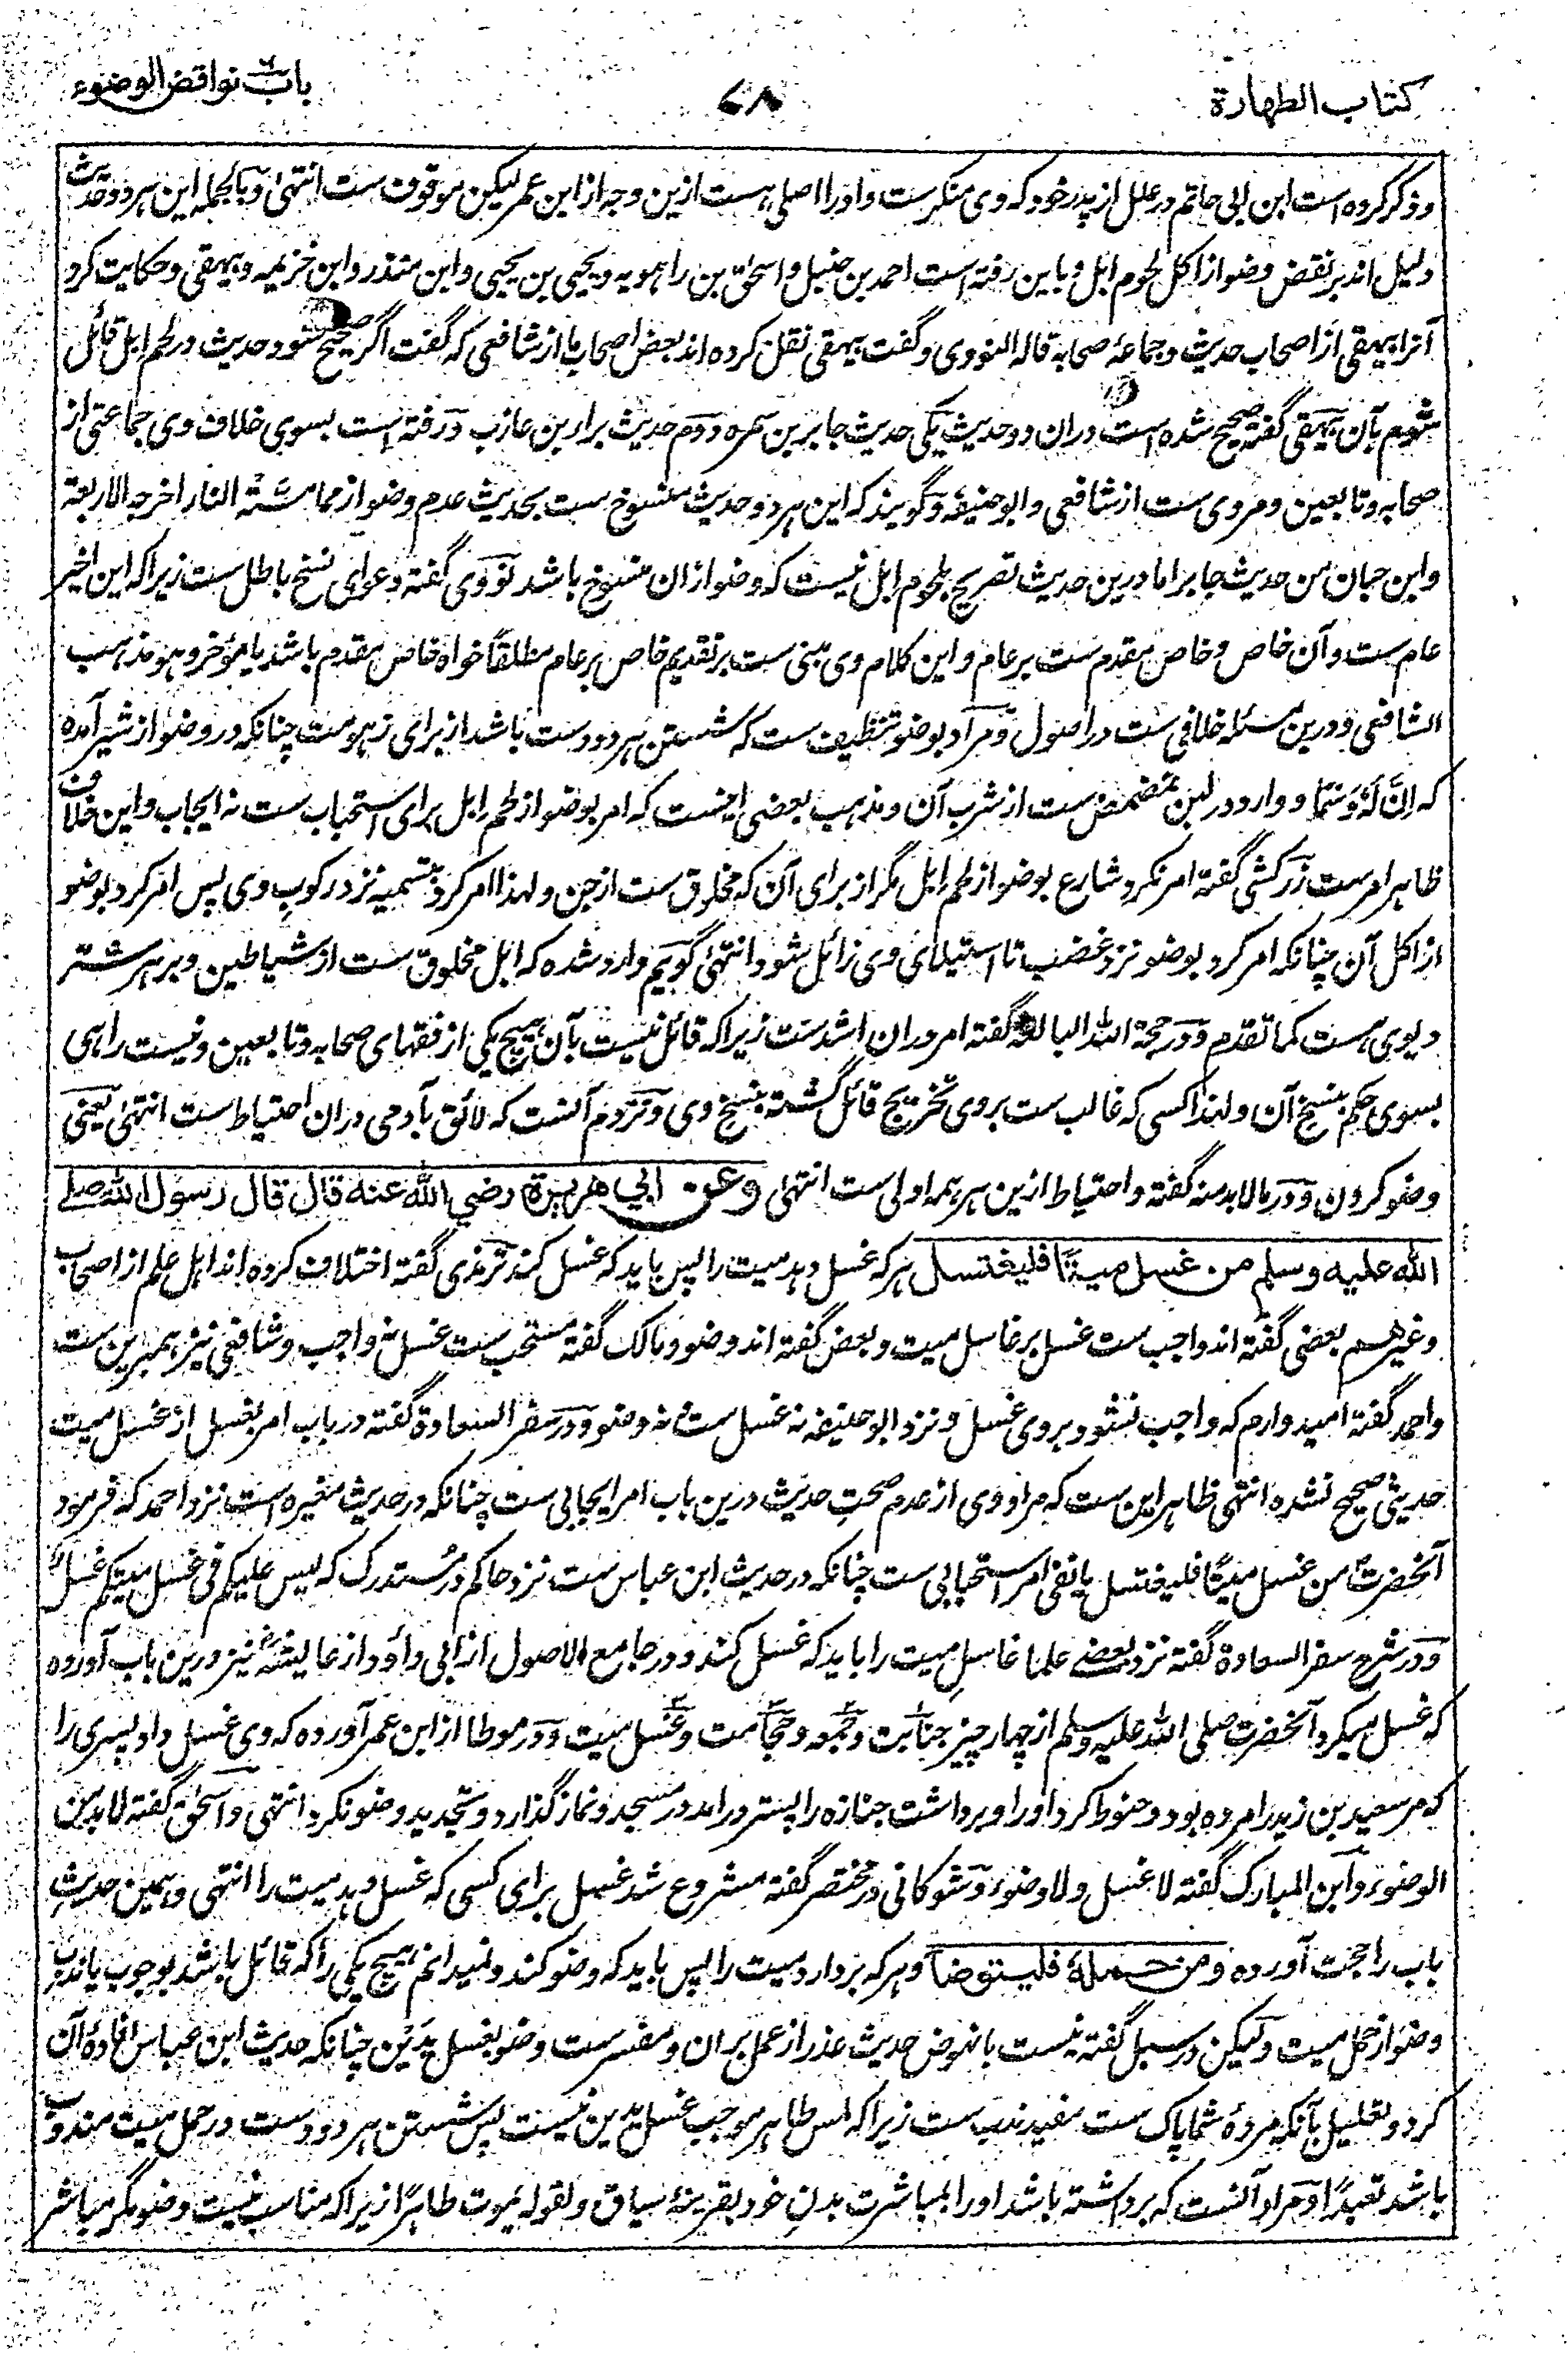 کتاب الطهارة
۷۸
باب نواقض الوضوء
وذکر کرده است ابن ابی حاتم در علل از پدر خود که وی منکر ست و او را اصلی هست ازین وجه از ابن عمر لیکن موقوف ست انتهیٰ و بالجمله این هر دو حدیث
دلیل اند بر نقض وضو از اکل لحوم ابل و باین رفته است احمد بن حنبل و اسحٰق بن راهویه و یحیی بن یحیی و ابن منذر و ابن خزیمه و بیهقی و حکایت کرد
آنرا بیهقی از اصحاب حدیث و جماعهٔ صحابه قاله النووی و گفت بیهقی نقل کرده اند بعض اصحاب ما از شافعی که گفت اگر صحیح شود حدیث در لحم ابل قائل
شوم بآن بیهقی گفته صحیح شده است دران دو حدیث یکی حدیث جابر بن سمره دوم حدیث براء بن عازب و رفته است بسوی خلاف وی جماعتی از
صحابه و تابعین و مروی ست از شافعی و ابوحنیفه و گویند که این هر دو حدیث منسوخ ست بحدیث عدم وضو از مما مسّته النار اخرجه الاربعة
و ابن حبان من حدیث جابر اما درین حدیث تصریح بلحوم ابل نیست که وضو ازان منسوخ باشد نووی گفته دعوای نسخ باطل ست زیرا که این اخیر
عام ست و آن خاص و خاص مقدم ست بر عام و این کلام وی مبنی ست بر تقدیم خاص بر عام مطلقاً خواه خاص مقدم باشد یا مؤخر و هو مذهب
الشافعی و درین مسئله خلافی ست در اصول و مراد بوضو تنظیف ست که شستن هر دو دست باشد از برای زهومت چنانکه در وضو از شیر آمده
که اِنَّ لَهٗ دَسَمًا و وارد در لبن تمضمض ست از شرب آن و مذهب بعضی اینست که امر بوضو از لحم ابل برای استحباب ست نه ایجاب و این خلاف
ظاهر امر ست زرکشی گفته امر نکرد شارع بوضو از لحم ابل مگر از برای آن که مخلوق ست از جن و لهذا امر کرد بتسمیه نزد رکوب وی پس امر کرد بوضو
از اکل آن چنانکه امر کرد بوضو نزد غضب تا استیلای وی زائل شود انتهیٰ گویم وارد شده که ابل مخلوق ست از شیاطین و بر هر شتر
دیوی هست کما تقدم و در حجة الله البالغه گفته امر دران اشد ست زیرا که قائل نیست بآن هیچ یکی از فقهای صحابه و تابعین و نیست راهی
بسوی حکم بنسخ آن و لهذا کسی که غالب ست بروی تخریج قائل گشته بنسخ وی و نزدم آنست که لائق بآدمی دران احتیاط ست انتهیٰ یعنی
وضو کردن و در ما لا بد منه گفته و احتیاط ازین هر همه اولی ست انتهیٰ وعن ابي هريرة رضي الله عنه قال قال رسول الله صلے
الله عليه وسلم من غسل ميتًا فليغتسل هر که غسل دهد میت را پس باید که غسل کند ترمذی گفته اختلاف کرده اند اهل علم از اصحاب
و غیرهم بعضی گفته اند واجب ست غسل بر غاسل میت و بعض گفته اند وضو و مالک گفته مستحب ست غسل نه واجب و شافعی نیز همبرین ست
و احمد گفته امیدوارم که واجب نشود بروی غسل و نزد ابوحنیفه نه غسل ست نه وضو و در سفر السعادة گفته در باب امر بغسل از غسل میت
حدیثی صحیح نشده انتهی ظاهر این ست که مراد وی از عدم صحت حدیث درین باب امر ایجابی ست چنانکه در حدیث مغیره است نزد احمد که فرمود
آنحضرت من غسل میتًا فلیغتسل یا نفی امر استحبابی ست چنانکه در حدیث ابن عباس ست نزد حاکم در مستدرک که لیس علیکم فی غسل میتکم غسل
و در شرح سفر السعادة گفته نزد بعضے علما غاسل میت را باید که غسل کند و در جامع الاصول از ابی داؤد از عایشه نیز درین باب آورده
که غسل میکرد آنحضرت صلی الله علیه وسلم از چهار چیز جنابت و جمعه و حجامت و غسل میت و در موطا از ابن عمر آورده که وی غسل داد پسری را
که مر سعید بن زید را مرده بود و حنوط کرد او را و برداشت جنازه را پستر درآمد در مسجد و نماز گذارد و تجدید وضو نکرد انتهی و اسحٰق گفته لا بد من
الوضوء و ابن المبارک گفته لا غسل ولا وضوء و شوکانی در مختصر گفته مشروع شد غسل برای کسی که غسل دهد میت را انتهی و همین حدیث
باب را حجت آورده ومن حمله فليتوضأ و هر که بردارد میت را پس باید که وضو کند و نمیدانم هیچ یکی را که قائل باشد بوجوب یا ندب
وضو از حمل میت و لیکن در سبل گفته نیست با نهوض حدیث عذر از عمل بران و مفسر ست وضو بغسل یدین چنانکه حدیث ابن عباس افادهٔ آن
کرد و تعلیل بآنکه مردهٔ شما پاک ست مفید ندب ست زیرا که لمس طاهر موجب غسل یدین نیست پس شستن هر دو دست در حمل میت مندوب
باشد تعبدًا و مراد آنست که برداشته باشد او را بمباشرت بدن خود بقرینهٔ سیاق و لقوله یموت طاهرًا زیرا که مناسب نیست وضو مگر مباشر